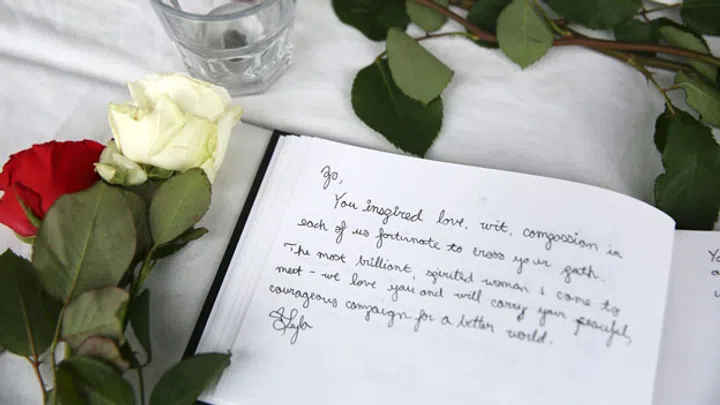 Jo,
You inspired love, wit, compassion in
each of us fortunate to cross your path.
The most brilliant, spirited woman I came to
meet - we love you and will carry your peaceful,
courageous campaign for a better world.
Yo